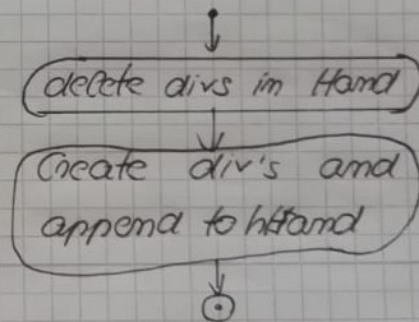 delete divs in Hand
Create div's and
append to hHand